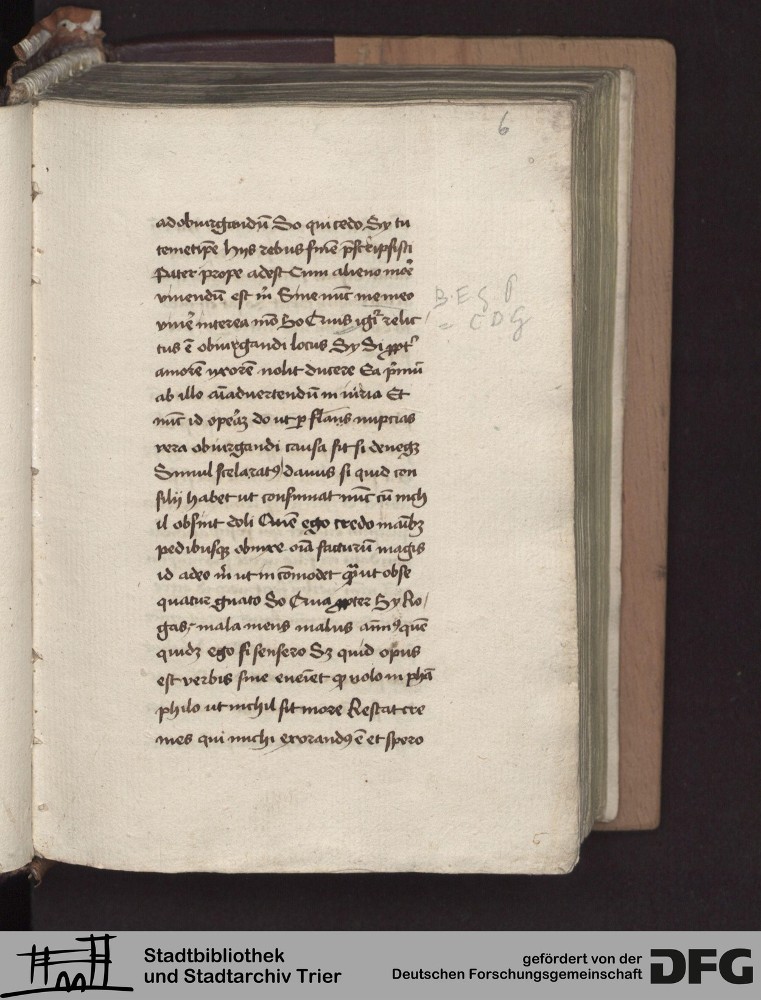 6
ad obiurgandū So qui cedo Sy tu
temetip̄e hijs rebus finē p̄scripsisti
Pater prope adest Cum alieno more
viuendū est m̄ Sine nūc me meo
viue᷑ interea mō So Cuius igīr relic
tus ē obiurgandi locus Sy Si ppt᷑
amorē vxorē nolit ducere Ea p̄mū
ab illo aīaduertendū in iuria Et
nūc id operā do ut p̄ falsas nupcias
vera obiurgandi causa sit si deneget
Simul scelaratꝰ dauus si quid con
silij habet ut consumat nūc cū nich
il obsint doli Quē ego credo manibꝫ
pedibusqꝫ obnixe oīa facturū magis
id adeo m̄ ut incōmodet quā ut obse
quatur gnato So Qua ppter Sy Ro
gas mala mens malus animꝰ quē
quidꝫ ego si sensero Sꝫ quid opus
est verbis sine eueīet qꝫ uolo in phā
philo ut nichil sit more Restat cre
mes qui michi exorandꝰ ē et spero
B·E G P
= C D G
Stadtbibliothek
und Stadtarchiv Trier
gefördert von der
Deutschen Forschungsgemeinschaft
DFG